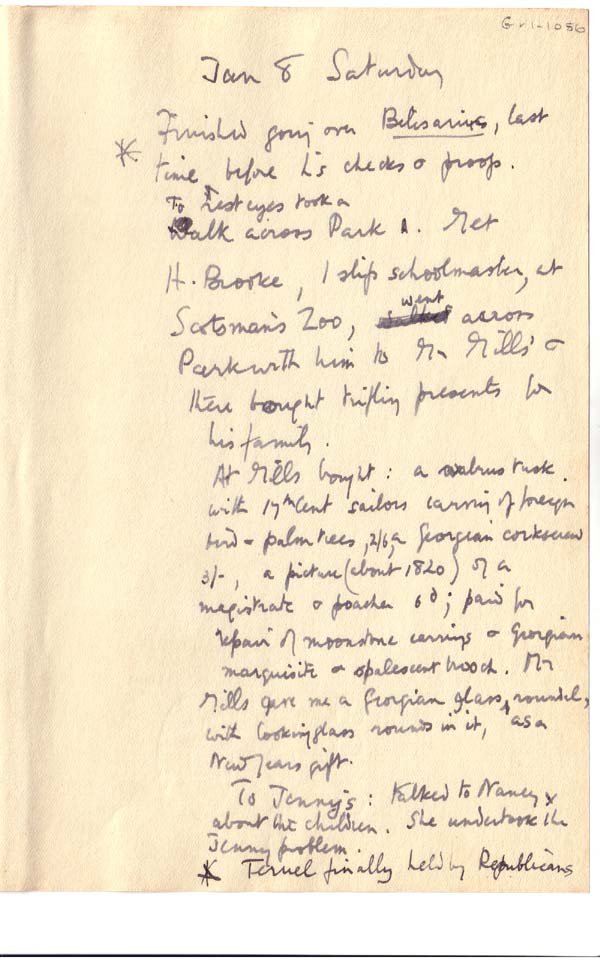 Gr1-1056
Jan 8 Saturday
Finished going over Belisarius, last
* time before L's checks & proofs.
To rest eyes took a
Walk across Park. Met
H. Brooke, Islip schoolmaster, at
Scotsman's Zoo, went across
Park with him to Mr Mills' &
there bought trifling presents for
his family.
At Mills bought: a walrus tusk
with 17th Cent sailors carving of foreign
bird & palm trees, 2/6, a Georgian corkscrew
3/-, a picture (about 1820) of a
magistrate & poacher 6d; paid for
repair of moonstone earrings & Georgian
marquisite & opalescent brooch. Mr
Mills gave me a Georgian glass roundel,
with lookingglass rounds in it, as a
New Years gift.
To Jenny's: talked to Nancy
about the children. She undertook the
Jenny problem.
* Teruel finally held by Republicans